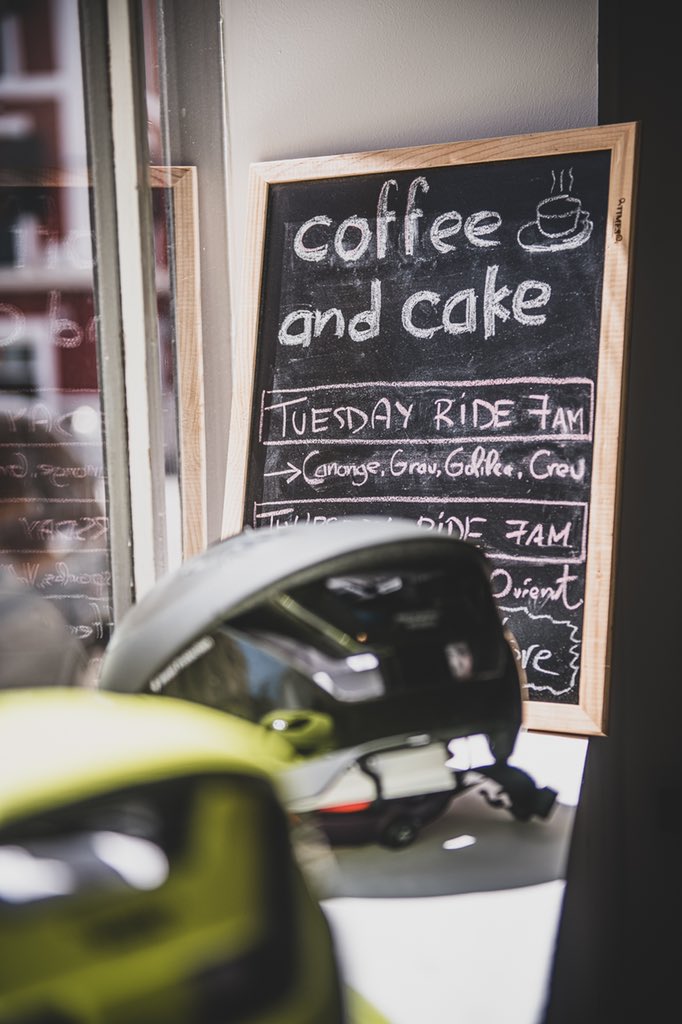 coffee
and cake
TUESDAY RIDE 7AM
→ Canonge, Grau, Galilea, Creu
RIDE 7AM
Orient